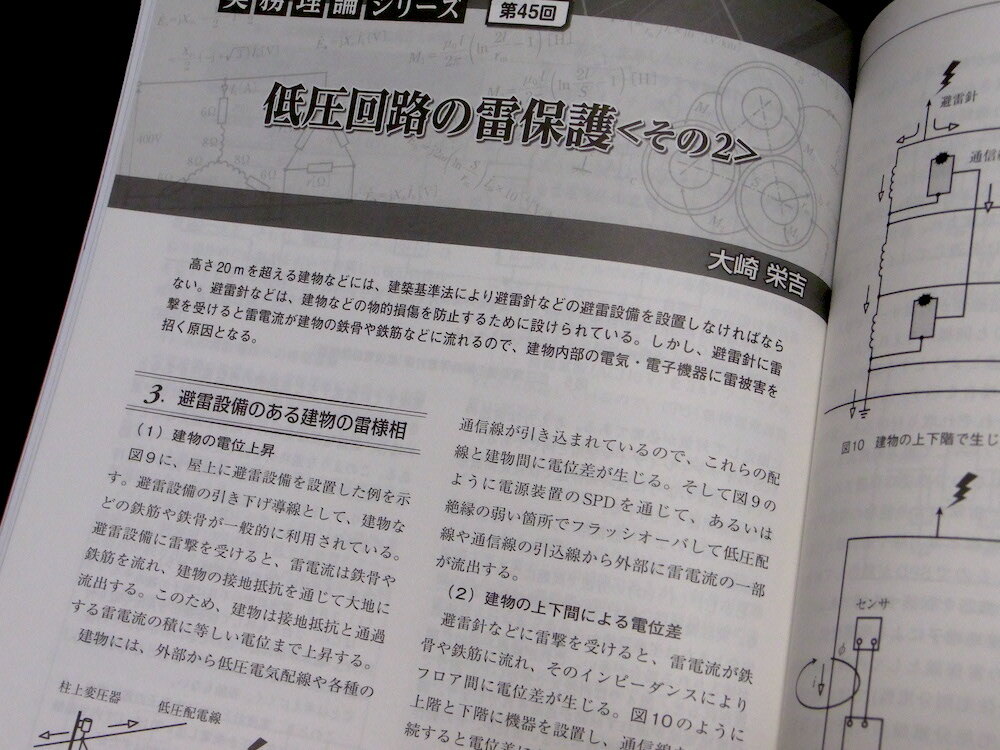 実務理論シリーズ
第45回
低圧回路の雷保護<その2>
大崎 栄吉
高さ20mを超える建物などには、建築基準法により避雷針などの避雷設備を設置しなければなら
ない。避雷針などは、建物などの物的損傷を防止するために設けられている。しかし、避雷針に雷
撃を受けると雷電流が建物の鉄骨や鉄筋などに流れるので、建物内部の電気・電子機器に雷被害を
招く原因となる。
3. 避雷設備のある建物の雷様相
(1) 建物の電位上昇
図9に、屋上に避雷設備を設置した例を示
す。避雷設備の引き下げ導線として、建物な
どの鉄筋や鉄骨が一般的に利用されている。
避雷設備に雷撃を受けると、雷電流は鉄骨や
鉄筋を流れ、建物の接地抵抗を通じて大地に
流出する。このため、建物は接地抵抗と通過
する雷電流の積に等しい電位まで上昇する。
建物には、外部から低圧電気配線や各種の
柱上変圧器
低圧配電線
通信線が引き込まれているので、これらの配
線と建物間に電位差が生じる。そして図9の
ように電源装置のSPDを通じて、あるいは
絶縁の弱い箇所でフラッシオーバして低圧配
線や通信線の引込線から外部に雷電流の一部
が流出する。
(2) 建物の上下間による電位差
避雷針などに雷撃を受けると、雷電流が鉄
骨や鉄筋に流れ、そのインピーダンスにより
フロア間に電位差が生じる。図10のように
上階と下階に機器を設置し、通信線
続すると電位差に
避雷針
通信
図10 建物の上下階で生じ
センサ
φ
i